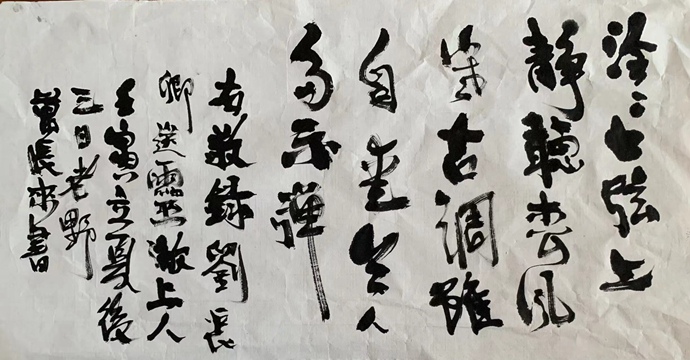 泠泠七弦上
靜聽松風
寒古調雖
自愛今人
多不彈
右敬錄劉長
卿送靈澈上人
壬寅立夏後
三日老野
萬張書